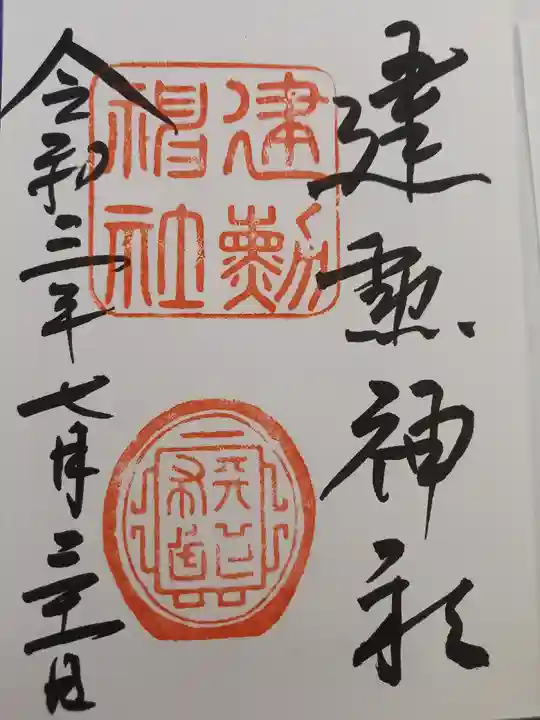 建勲神社
建勲
神社
令和三年七月三十一日